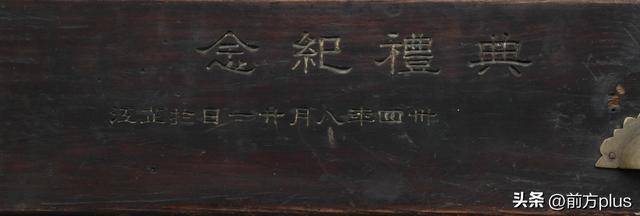 典禮紀念
卅四年八月廿一日於芷江
头条 @前方plus